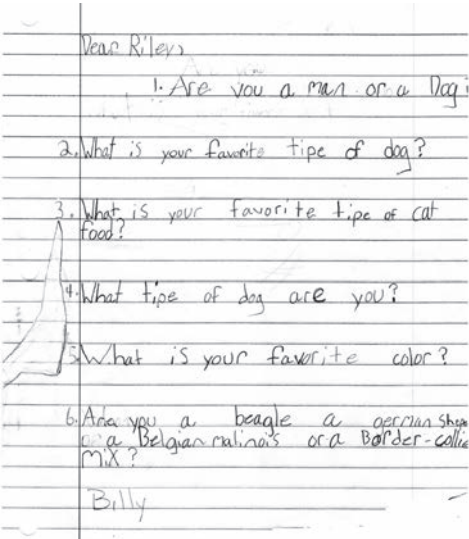 Dear Riley,
1. Are you a man or a Dog
2. What is your favorite tipe of dog?
3. What is your favorite tipe of cat
food?
4. What tipe of dog are you?
5. What is your favorite color?
6. Are you a beagle a german shep
or a Belgian malinois or a Border-collie
mix?
Billy